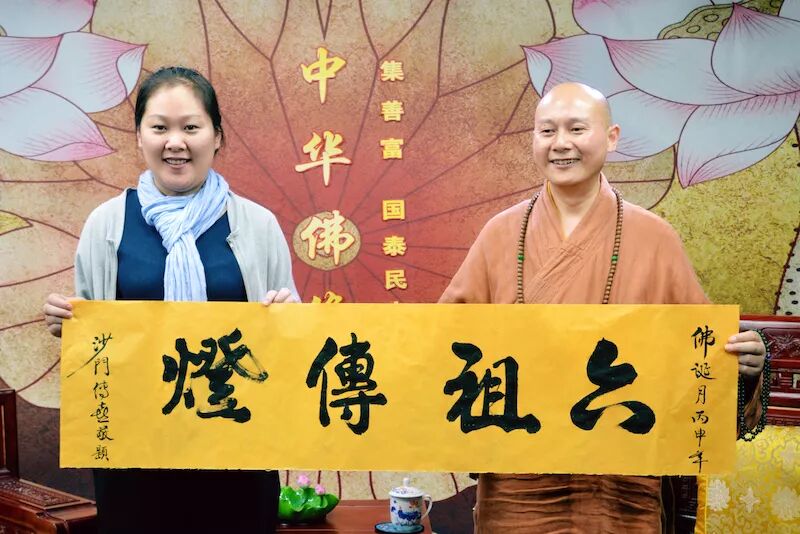 中华佛
集善富 国泰民
佛诞月丙申年
六祖傳燈
沙門傳喜敬題